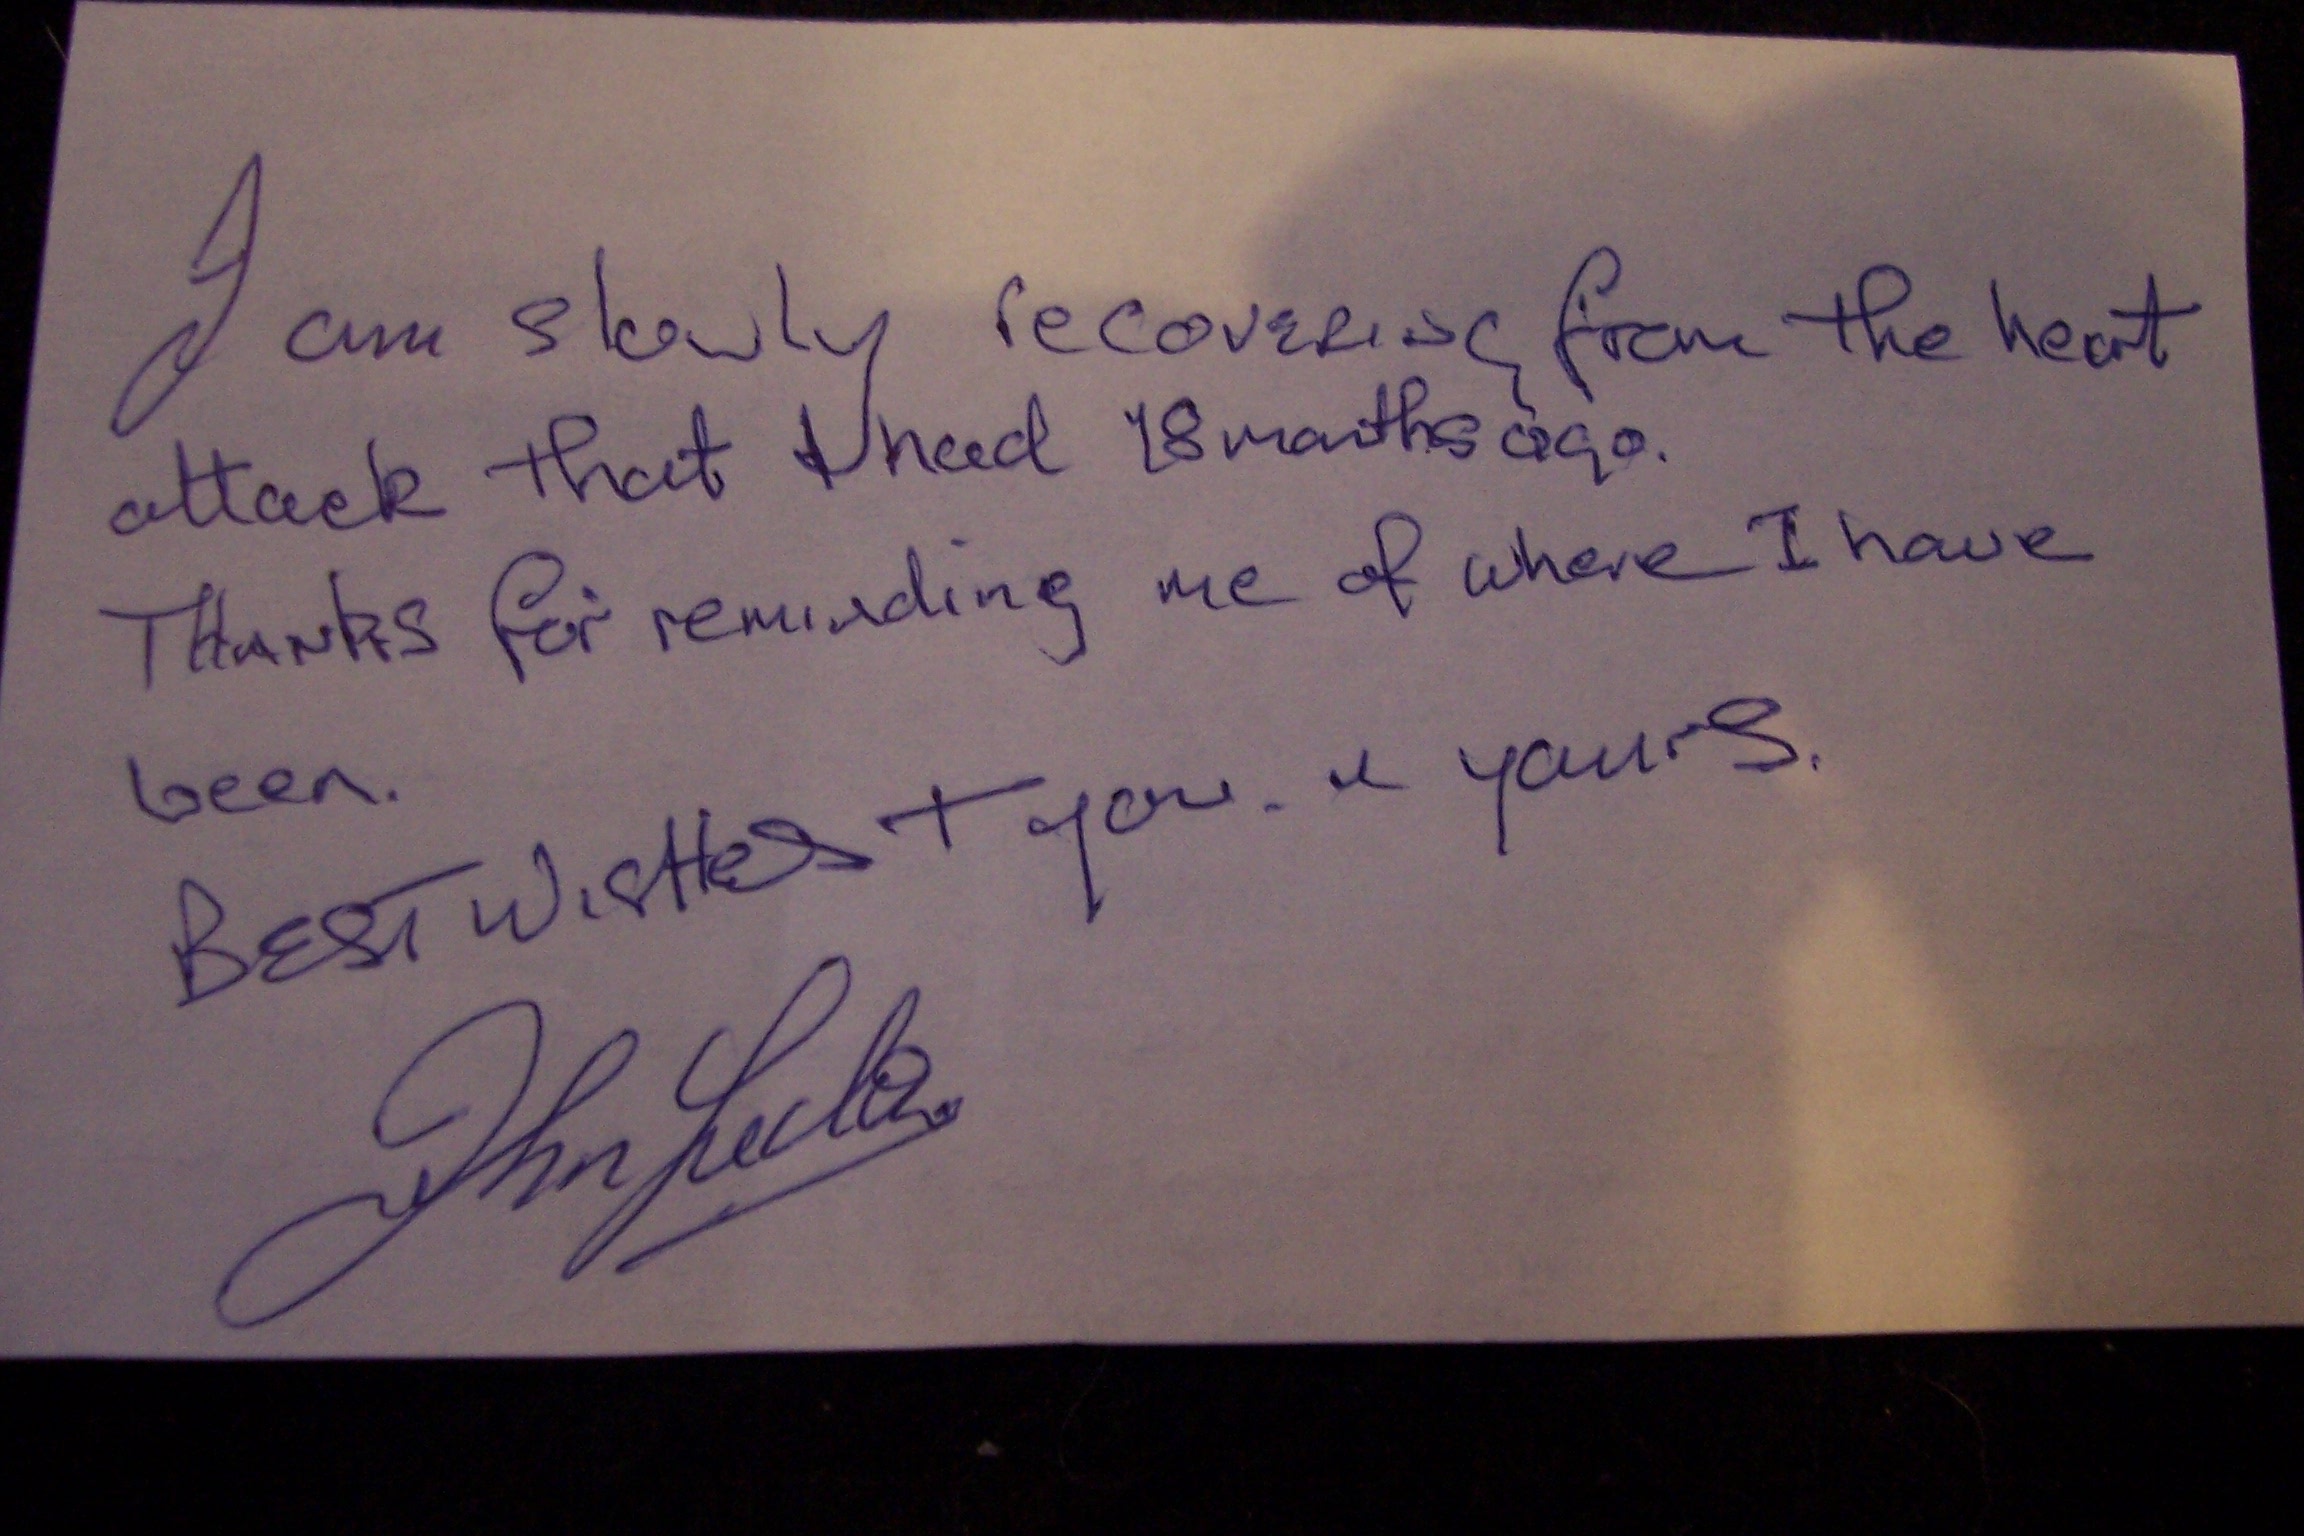 I am slowly recovering from the heart
attack that I had 18 months ago.
THANKS for reminding me of where I have
been.
BEST WISHES + you. & yours.
John